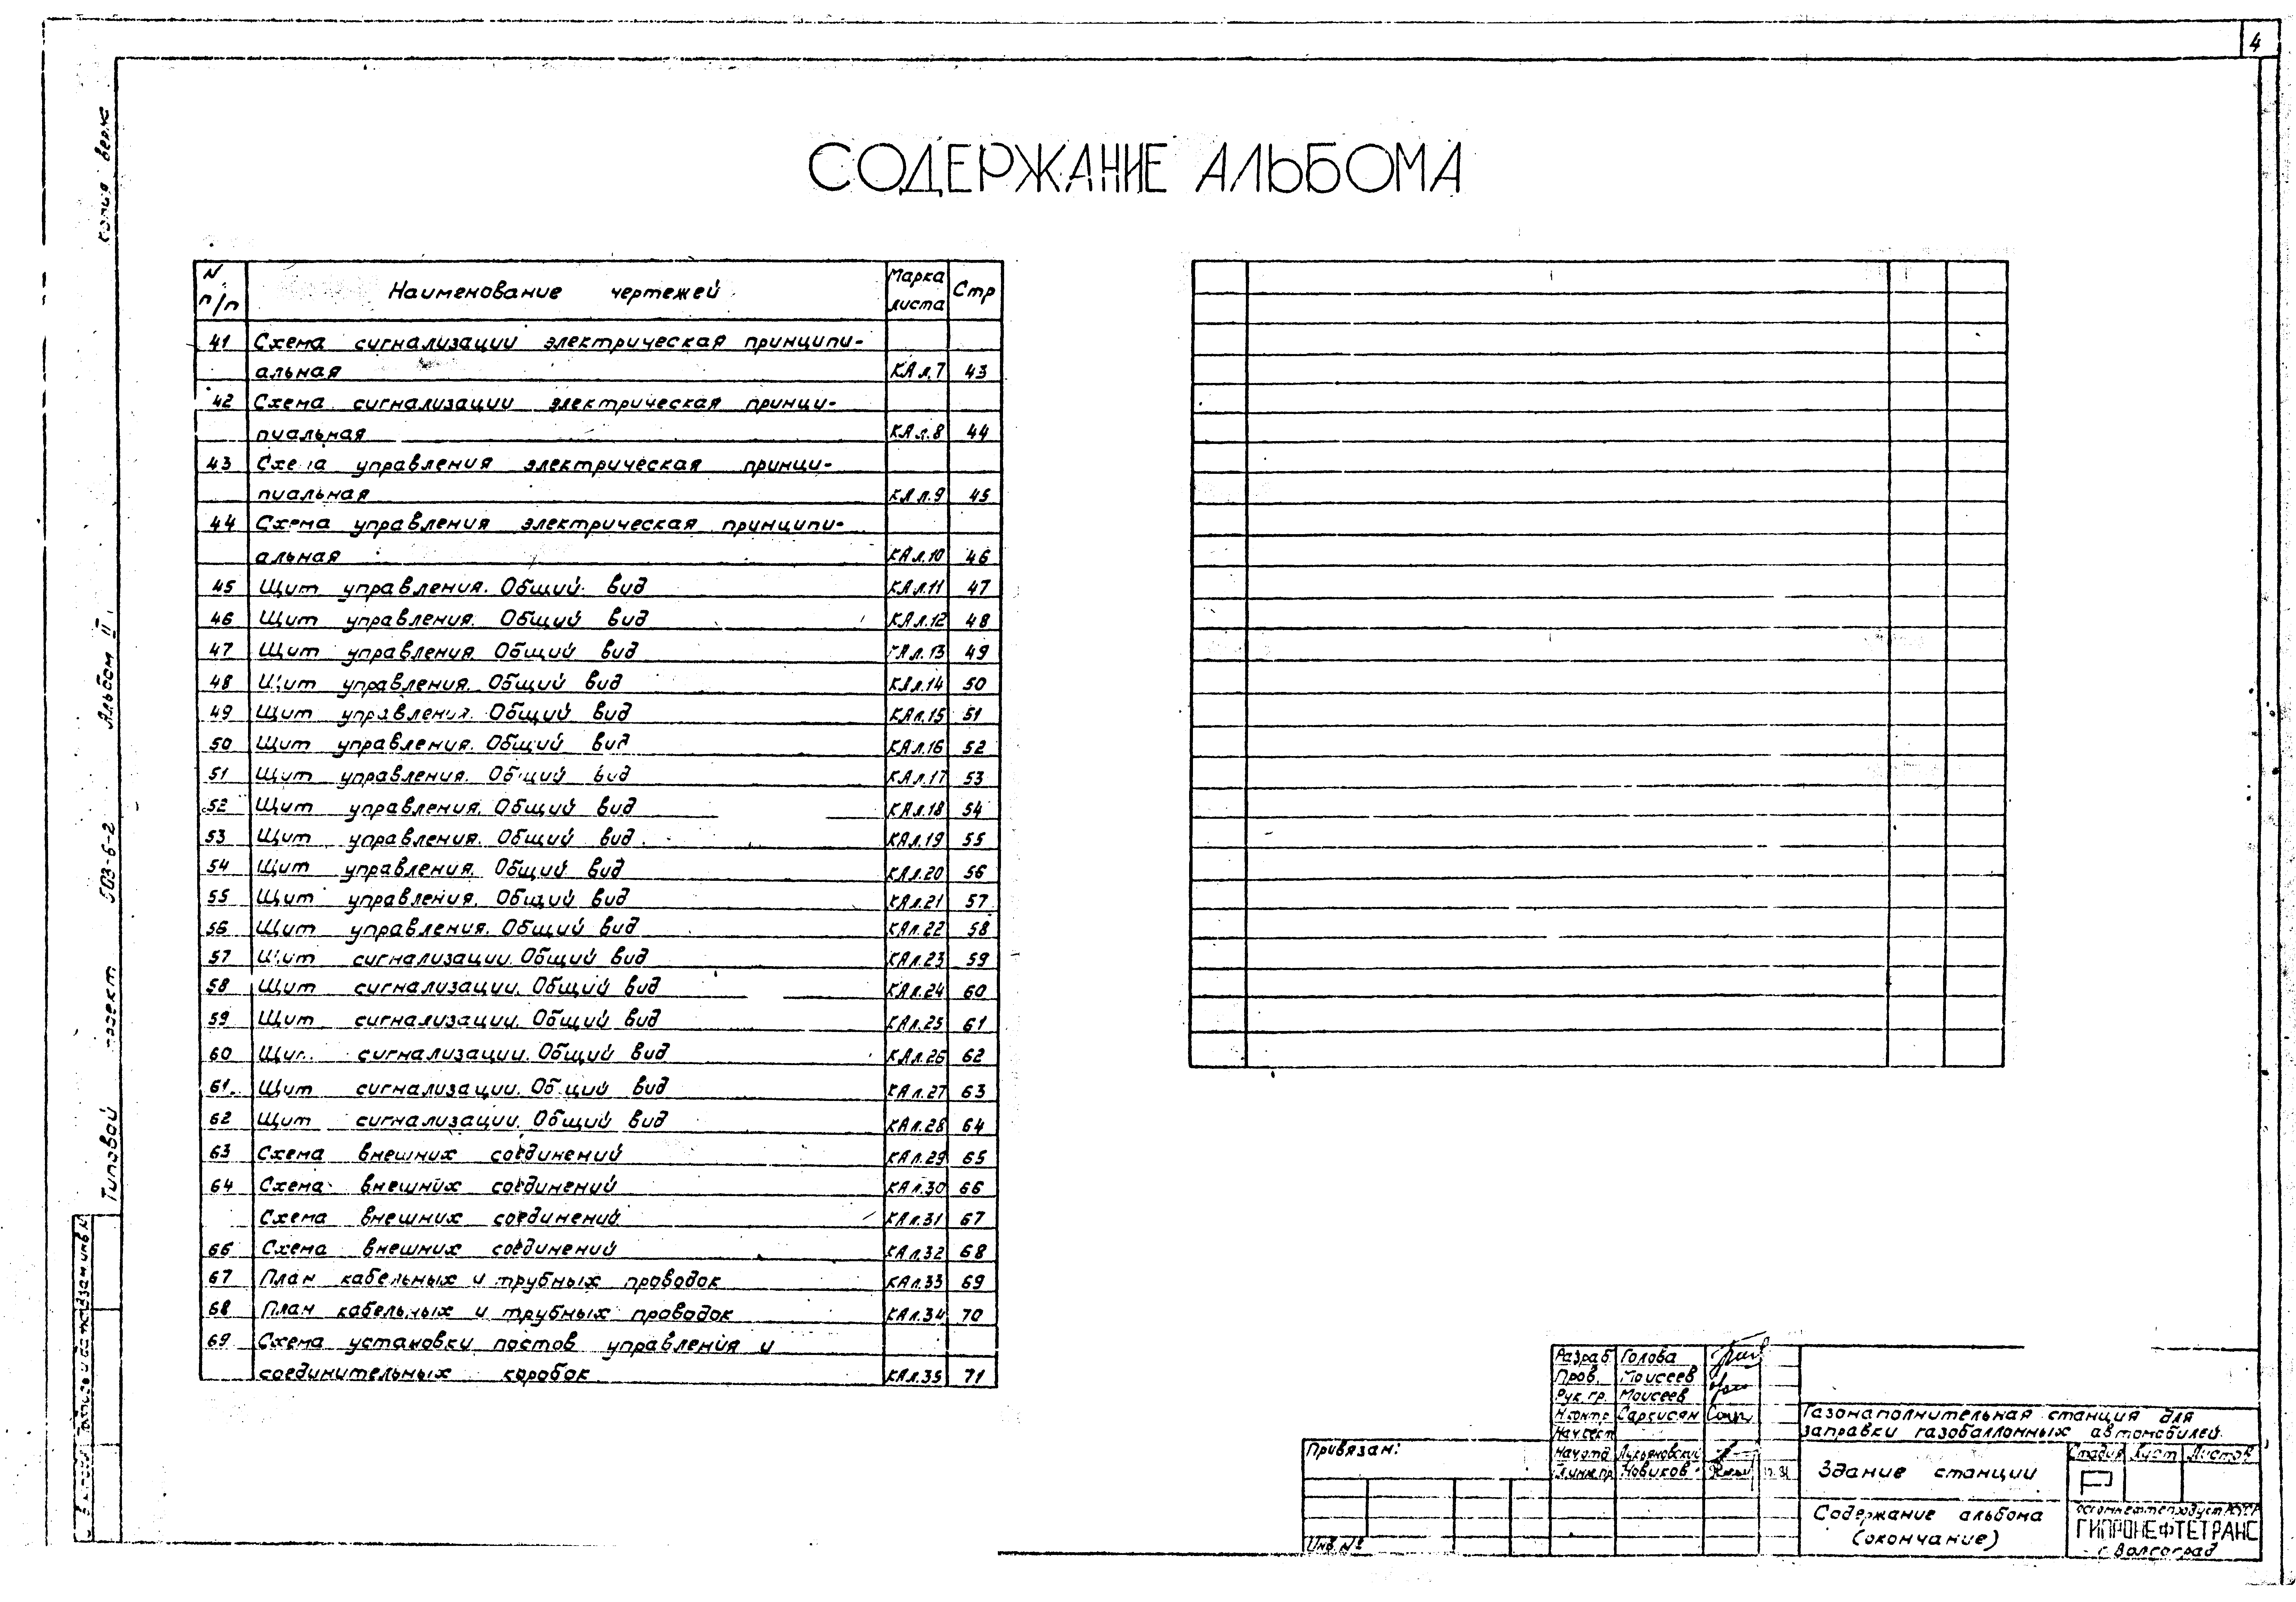 4
СОДЕРЖАНИЕ АЛЬБОМА
N п/п Наименование чертежей Марка листа Стр
41 Схема сигнализации электрическая принципи-
альная КА л.7 43
42 Схема сигнализации электрическая принци-
пиальная КА л.8 44
43 Схема управления электрическая принци-
пиальная КА л.9 45
44 Схема управления электрическая принципи-
альная КА л.10 46
45 Щит управления. Общий вид КА л.11 47
46 Щит управления. Общий вид КА л.12 48
47 Щит управления. Общий вид КА л.13 49
48 Щит управления. Общий вид КА л.14 50
49 Щит управления. Общий вид КА л.15 51
50 Щит управления. Общий вид КА л.16 52
51 Щит управления. Общий вид КА л.17 53
52 Щит управления. Общий вид КА л.18 54
53 Щит управления. Общий вид КА л.19 55
54 Щит управления. Общий вид КА л.20 56
55 Щит управления. Общий вид КА л.21 57
56 Щит управления. Общий вид КА л.22 58
57 Щит сигнализации. Общий вид КА л.23 59
58 Щит сигнализации. Общий вид КА л.24 60
59 Щит сигнализации. Общий вид КА л.25 61
60 Щит сигнализации. Общий вид КА л.26 62
61 Щит сигнализации. Общий вид КА л.27 63
62 Щит сигнализации. Общий вид КА л.28 64
63 Схема внешних соединений КА л.29 65
64 Схема внешних соединений КА л.30 66
Схема внешних соединений КА л.31 67
66 Схема внешних соединений КА л.32 68
67 План кабельных и трубных проводок КА л.33 69
68 План кабельных и трубных проводок КА л.34 70
69 Схема установки постов управления и
соединительных коробок КА л.35 71
Типовой проект 503-6-2 Альбом II
копия верна
Привязан:
Инв. №
Разраб Голова
Пров. Моисеев
Рук. гр. Моисеев
Н.контр Саркисян
Нач.сект
Нач.отд Лукьяновский
Гл.инж.пр Новиков
Газонаполнительная станция для
заправки газобаллонных автомобилей
Здание станции
Стадия Лист Листов
Р
Содержание альбома
(окончание)
ГИПРОНЕФТЕТРАНС
г Волгоград